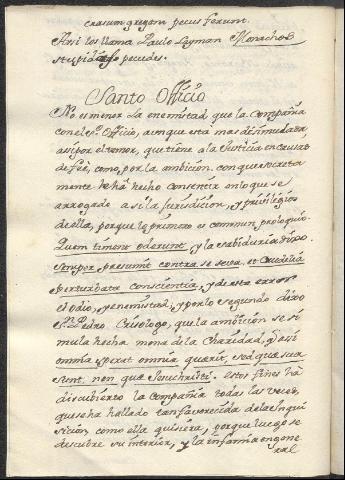 crasum gregem pecus ferunt.
Assi los llama Paulo Layman Monachos
stupidos pecudes.
Santo Officio
No es menor la enemistad que la Compañia
con el Sto. Officio, aunque esta mas disimulada,
asi por el temor, que tiene a la Justicia en causas
de feè, como, por la ambicion, con que secreta
mente le ha hecho consentir en lo que se
arrogado a si la Jurisdicion, y privilegios
de ella, porque lo primero es commun prologuio
Quem timent oderunt, y la sabiduria dixo.
Semper presumit contra se seva, et
perturbata conscientia, y de este
el odio, y enemistad, y por lo segundo dixo
Sn. Pedro Crisologo, que la ambicion se si
mula hecha mona de la Charidad, y assi
omnia sperat omnia quærit, sed quæ sua
sunt, non quæ Jesuchristi. estos fines ha
discubierto la Compañia todas las veces,
que se ha hallado tan favorecida de la Inqui
sicion como ella quisiera, porque luego se
descubre su interior, y la infamia en gene
ral